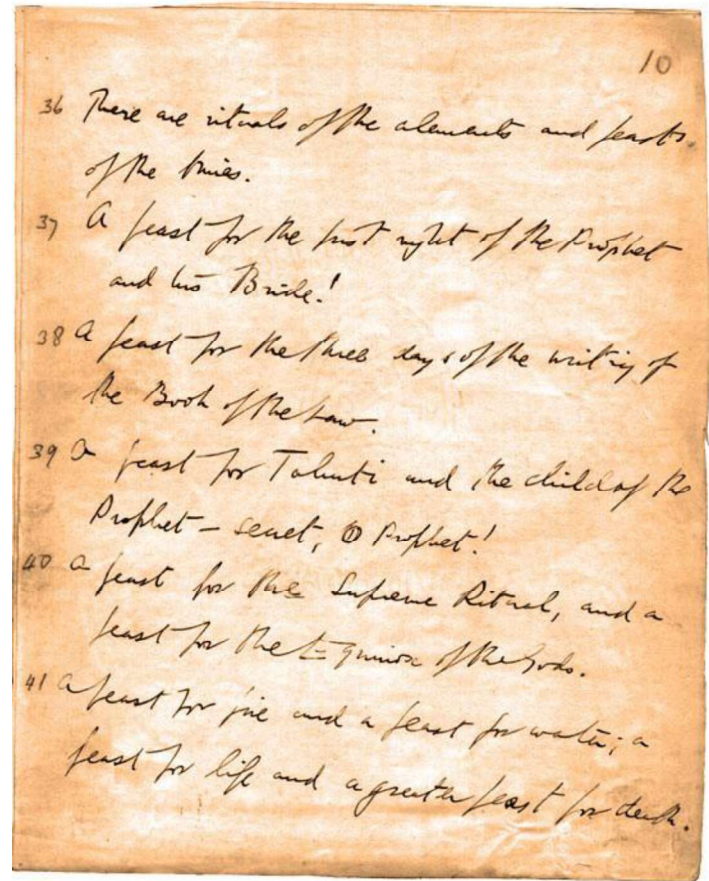 10
36 There are rituals of the elements and feasts
of the times.
37 A feast for the first night of the Prophet
and his Bride!
38 A feast for the three days of the writing of
the Book of the Law.
39 A feast for Tahuti and the child of the
Prophet – secret, O Prophet!
40 A feast for the Supreme Ritual, and a
feast for the Equinox of the Gods.
41 A feast for fire and a feast for water; a
feast for life and a greater feast for death.